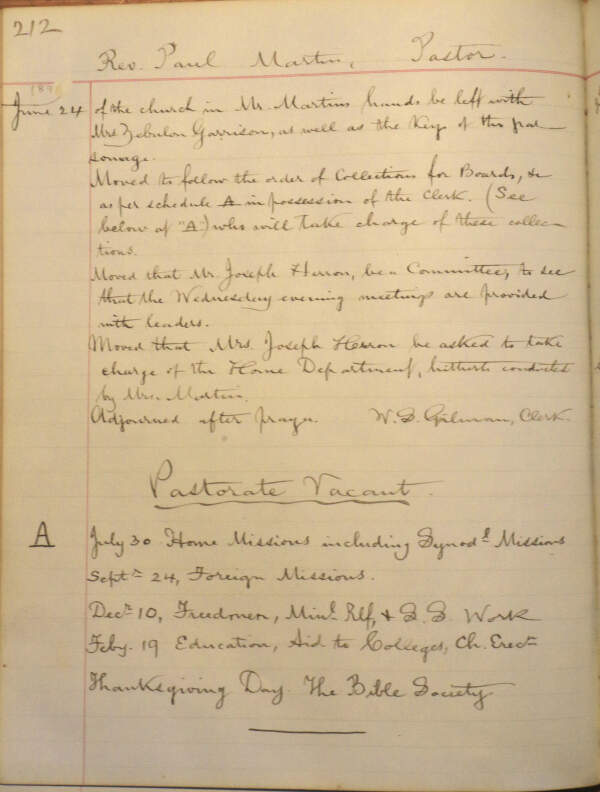 212
Rev. Paul Martin, Pastor.
June 24 of the church in Mr. Martins hands be left with
Mrs Zebulon Garrison, as well as the Key of the par
sonage.
Moved to follow the order of Collections for Boards, &c
as per schedule A in possession of the Clerk. (See
below at "A") who will take charge of these collec-
tions.
Moved that Mr. Joseph Herron, be a Committee, to see
that the Wednesday evening meetings are provided
with leaders.
Moved that Mrs. Joseph Herron be asked to take
charge of the Home Department, hitherto conducted
by Mrs. Martin.
Adjourned after prayer. W. S. Gilman, Clerk.
Pastorate Vacant.
A July 30 Home Missions including Synodl Missions
Septr 24, Foreign Missions.
Decr 10, Freedmen, Minl Rlf, & S. S. Work
Feby. 19 Education, Aid to Colleges, Ch. Erectn
Thanksgiving Day. The Bible Society